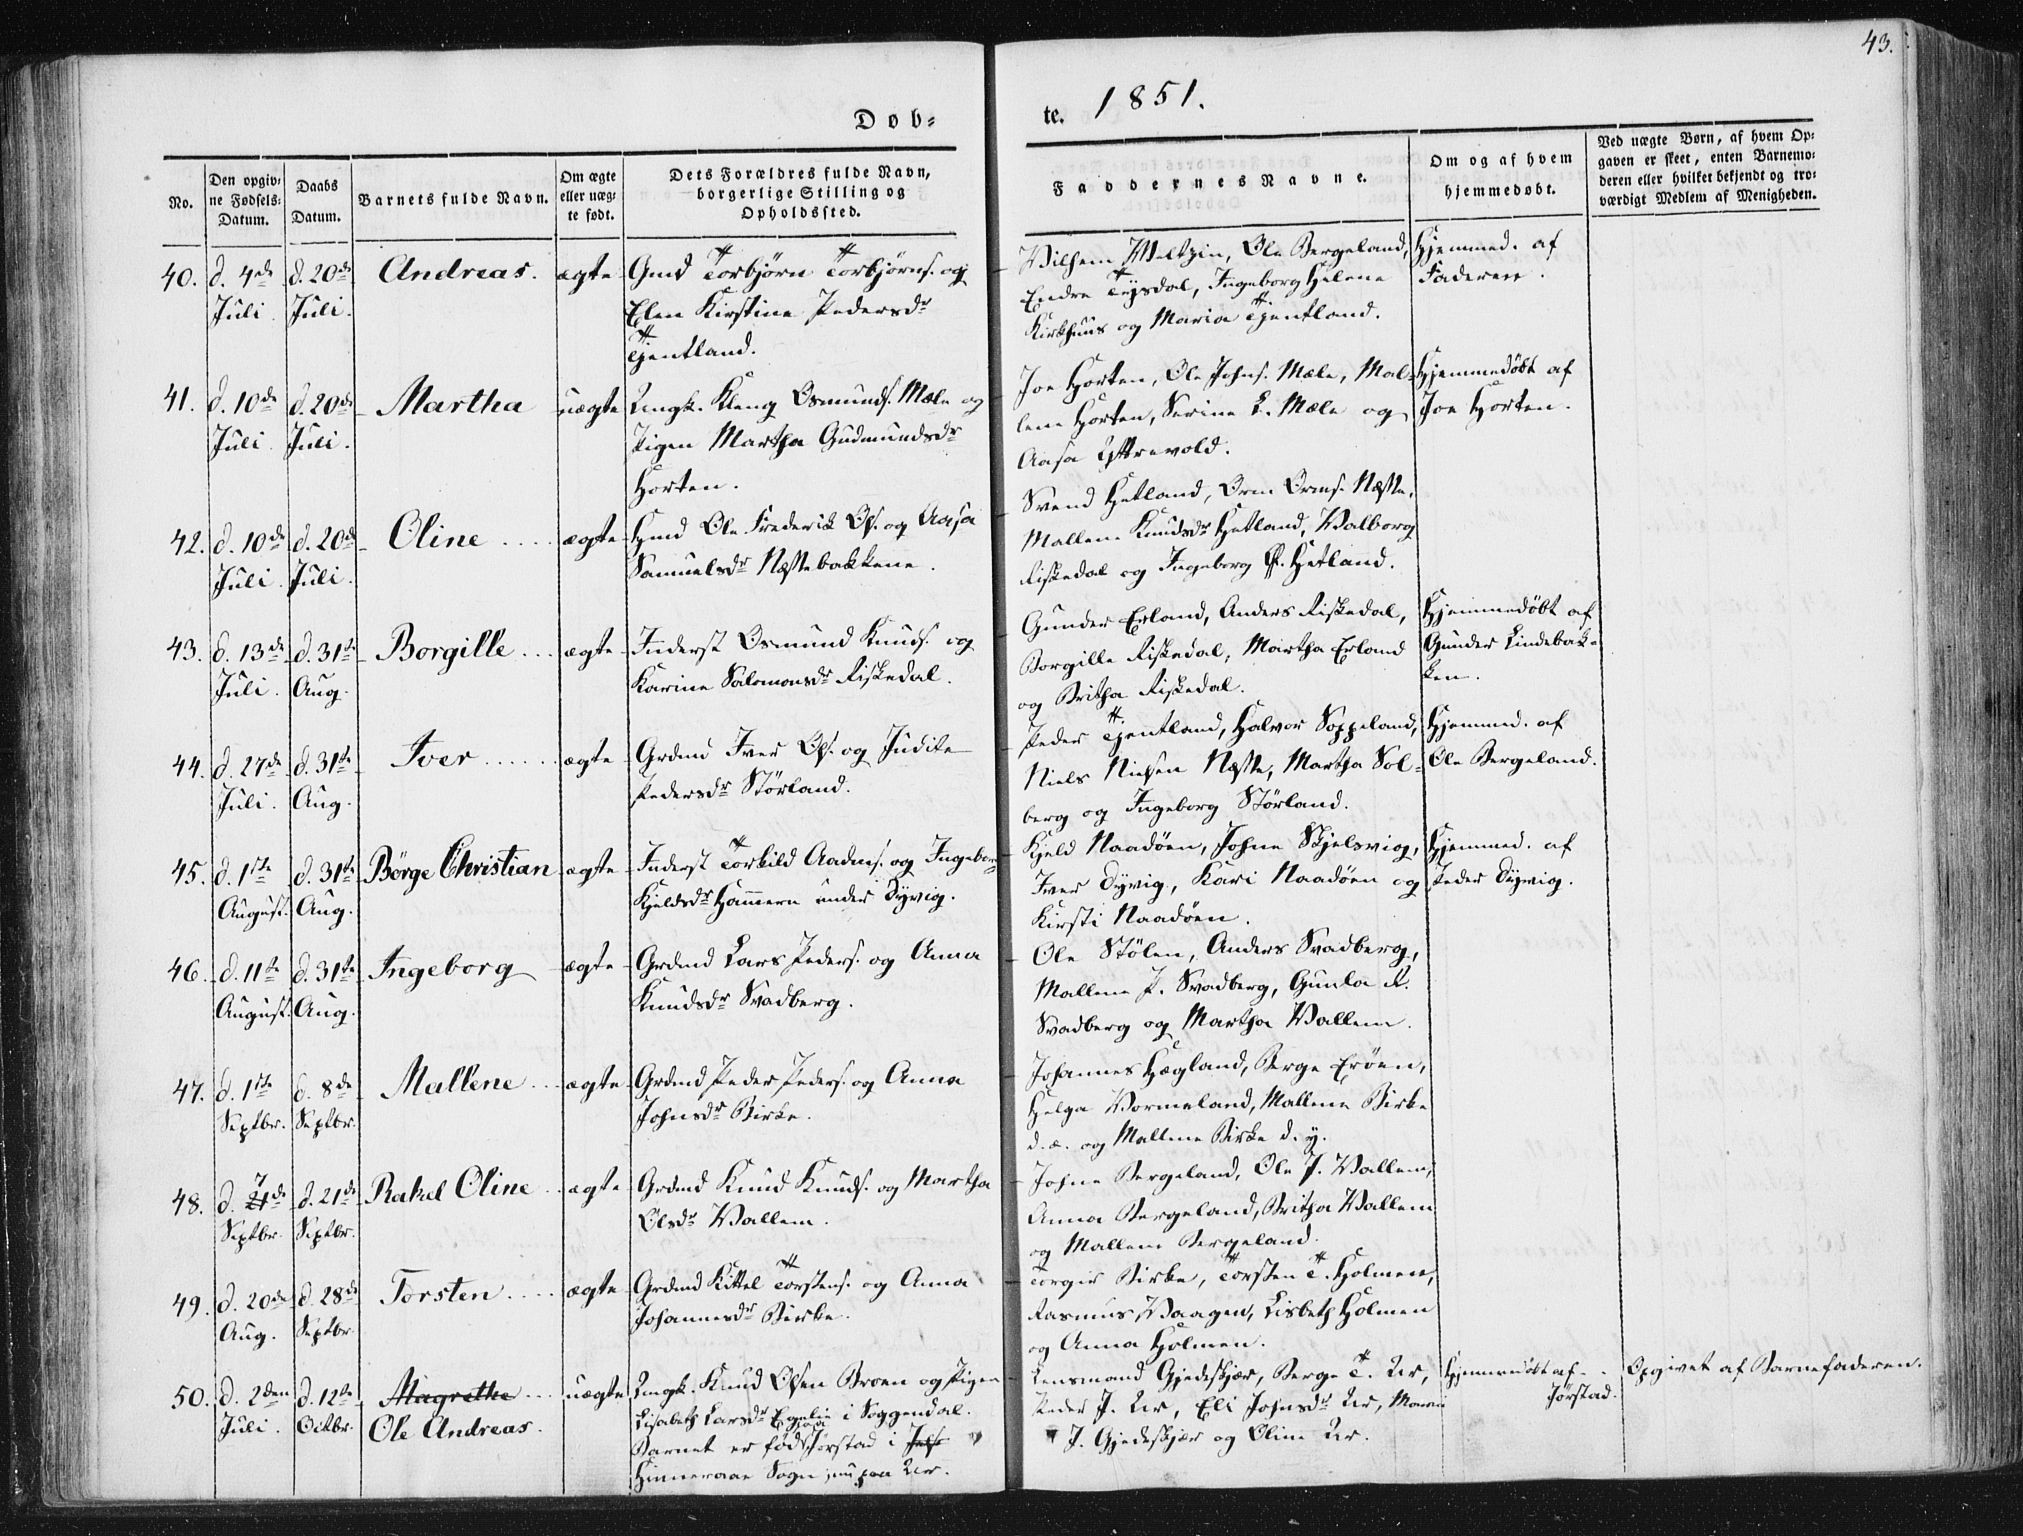 43.
Døb-
te. 1851.
No.
Den opgiv-
ne Fødsels-
Datum.
Daabs
Datum.
Barnets fulde Navn.
Om ægte
eller uæg-
te født.
Dets Forældres fulde Navn,
borgerlige Stilling og
Opholdssted.
Faddernes Navne.
Om og af hvem
hjemmedøbt.
Ved uægte Børn, af hvem Op-
gaven er skeet, enten Barnemo-
deren eller hvilket bekjendt og tro-
værdigt Medlem af Menigheden.
40. d. 4de Juli d. 20de Juli. Andreas. ægte
Gmd Torbjørn Torbjørns. og
Elen Kirstine Pedersdr
Tjentland.
Vilhem Meltzin, Ole Bergeland,
Endre Tysdal, Ingeborg Helene
Kirkhuus og Maria Tjentland.
Hjemmed. af
Faderen.
41. d. 10de Juli. d. 20de Juli. Martha uægte
Ungk. Kleng Osmunds. Mæle og
Pigen Martha Gudmundsdr
Horten.
Joe Horten, Ole Johns. Mæle, Mal-
lene Horten, Serine L. Mæle og
Aasa Yttrevold.
Hjemmedøbt af
Joe Horten.
42. d. 10de Juli. d. 20de Juli. Oline .... ægte
Hmd Ole Frederik Ols. og Aasa
Samuelsdr Næssebakkene.
Svend Hetland, Orm Orms. Næsse,
Mallene Knudsdr Hetland, Valborg
Riskedal og Ingeborg Hetland.
43. d. 13de Juli. d. 31te Aug. Borgille ... ægte
Inderst Osmund Knuds. og
Karine Salomonsdr Riskedal.
Gunder Erland, Anders Riskedal,
Borgille Riskedal, Martha Erland
og Britha Riskedal.
Hjemmedøbt af
Gunder Lindebak-
ken.
44. d. 27de Juli. d. 31te Aug. Iver ...... ægte
Grdmd Iver Ols. og Judite
Pedersdr Störland.
Peder Tjentland, Halvor Soppeland,
Niels Nielsen Næsse, Martha Sol-
berg og Ingeborg Störland.
Hjemmed. af
Ole Bergeland.
45. d. 1ste August. d. 31te Aug. Börge Christian ægte
Inderst Torkild Aadns. og Ingeborg
Kjeldsdr Hammern under Dyvig.
Kjeld Naadöen, Johne Skjelsvig,
Iver Dyvig, Kari Naadöen og
Kirsti Naadöen.
Hjemmed. af
Peder Dyvig.
46. d. 11te August. d. 31te Aug. Ingeborg ægte
Grdmd Lars Peders. og Anna
Knudsdr Svadberg.
Ole Stölen, Anders Svadberg,
Mallene P. Svadberg, Gunla K.
Svadberg og Martha Vallem.
47. d. 1ste Septbr. d. 8de Septbr. Mallene ... ægte
Grdmd Peder Peders. og Anna
Johnsdr Birke.
Johannes Hægland, Berge Eröen,
Helga Vormeland, Mallene Birke
d. æ. og Mallene Birke d. y.
48. d. 7de Septbr. d. 21de Septbr. Rakel Oline .. ægte
Grdmd Knud Knuds. og Martha
Olsdr Vallem.
Johne Bergeland, Ole J. Vallem,
Anna Bergeland, Britha Vallem
og Mallene Bergeland.
49. d. 20de Aug. d. 28de Septbr. Torsten .... ægte
Grdmd Kittel Torstens. og Anna
Johannesdr Birke.
Torgir Birke, Torsten T. Holmen,
Rasmus Vaagen, Lisbeth Holmen
og Anna Holmen.
50. d. 2den Juli. d. 12te Octbr. Magrethe ... uægte
Ole Andreas.
Ungk. Knud Olsen Broen og Pigen
Lisabeth Larsdr Egelie i Soggendal.
Barnet er født paa Jörstad i
Hinneraae Sogn, nu paa Ur.
Lensmand Gjedeskjær, Berge T. Ur,
Peder J. Ur, Eli Johnsdr Ur, Maren
J. Gjedeskjær og Oline Ur.
Hjemmedøbt af
Jørstad.
Opgivet af Barnefaderen.